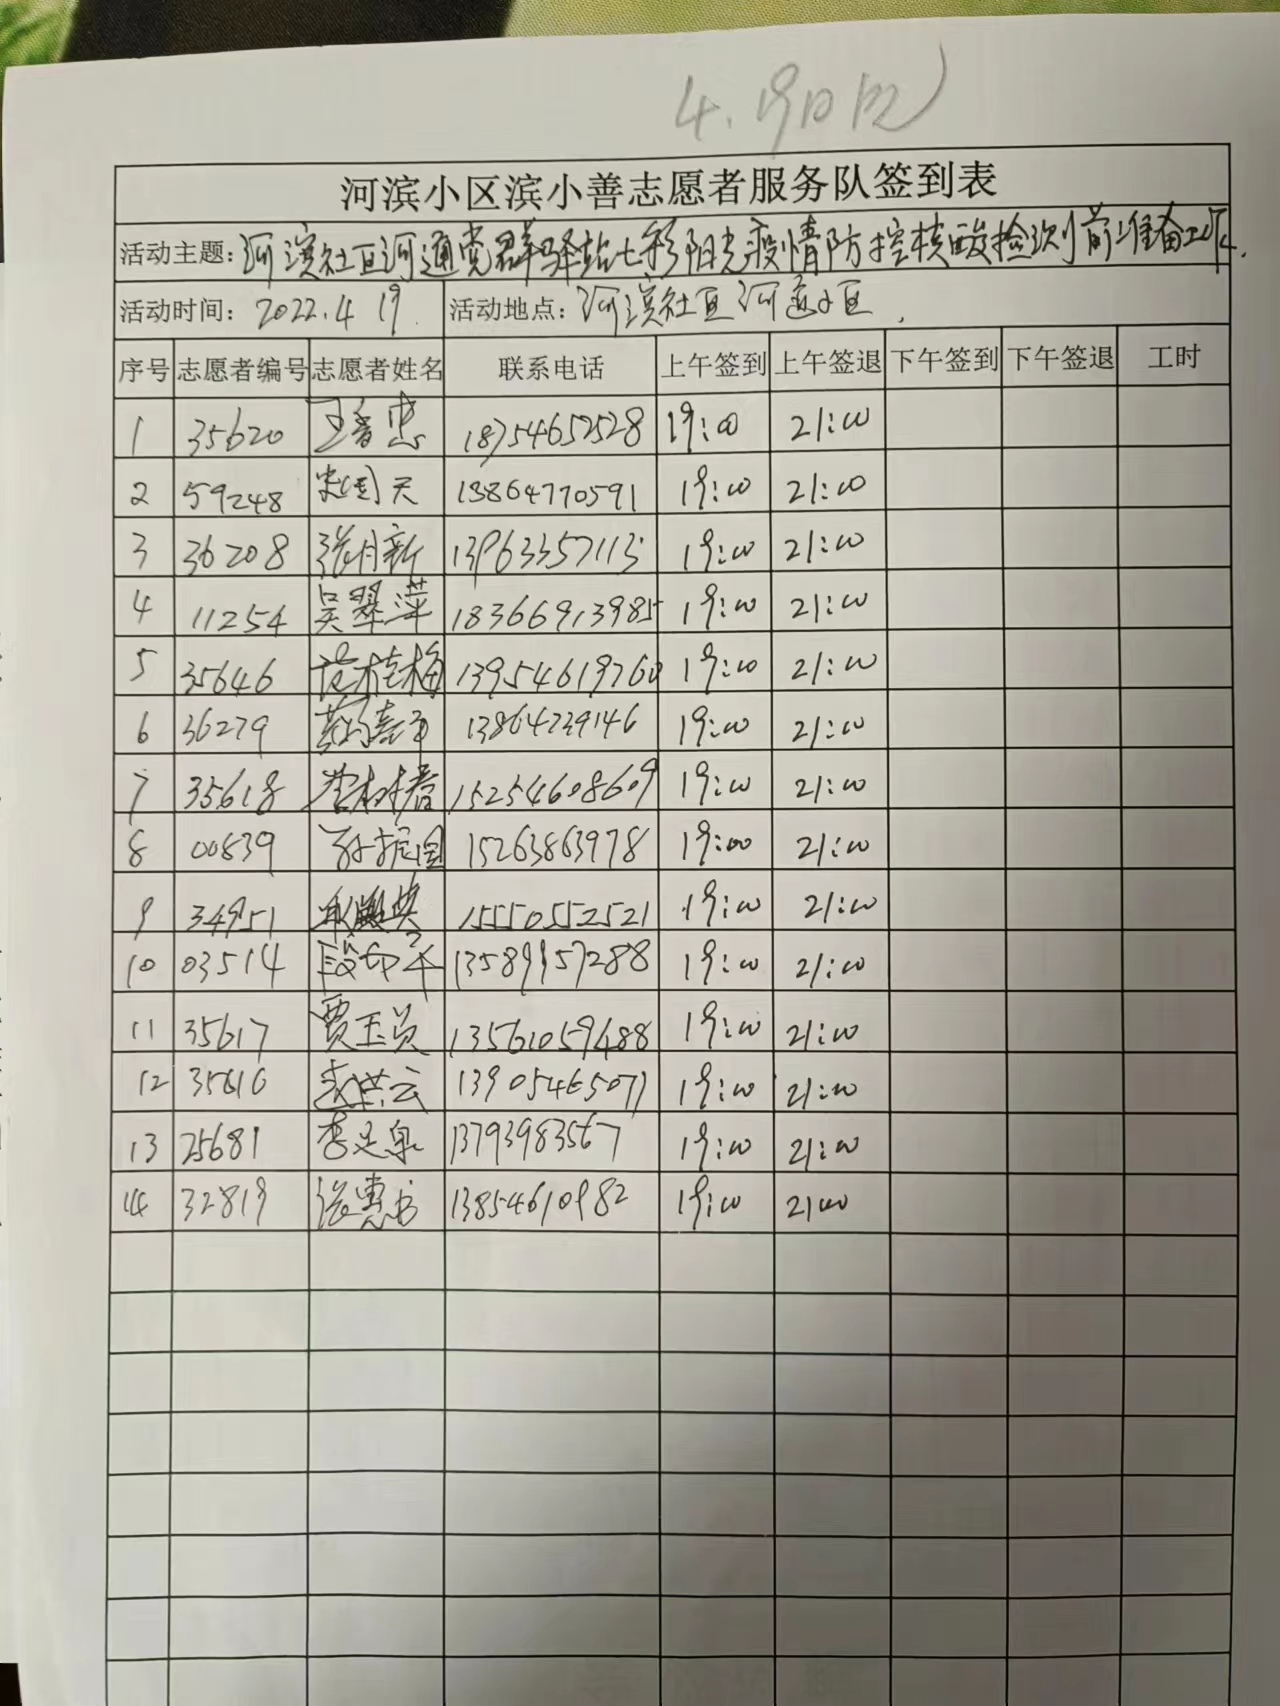 4.19日
河滨小区滨小善志愿者服务队签到表
活动主题：河滨社区河通党群驿站七彩阳光疫情防控核酸检测前准备工作.
活动时间：2022.4 19. 活动地点：河滨社区河通小区.
序号 志愿者编号 志愿者姓名 联系电话 上午签到 上午签退 下午签到 下午签退 工时
1 35620 18754652528 19:00 21:00
2 59248 13864770591 19:00 21:00
3 36208 张月新 13963357113 19:00 21:00
4 11254 吴翠萍 18366913985 19:00 21:00
5 35646 范桂梅 13954619760 19:00 21:00
6 36279 13864739146 19:00 21:00
7 35618 15254608609 19:00 21:00
8 00839 孙振国 15263863978 19:00 21:00
9 34951 15550552521 19:00 21:00
10 03514 13589957288 19:00 21:00
11 35617 贾玉英 13561059488 19:00 21:00
12 35616 13905465071 19:00 21:00
13 25681 李延泉 13793983567 19:00 21:00
14 32819 张惠书 13854610982 19:00 21:00